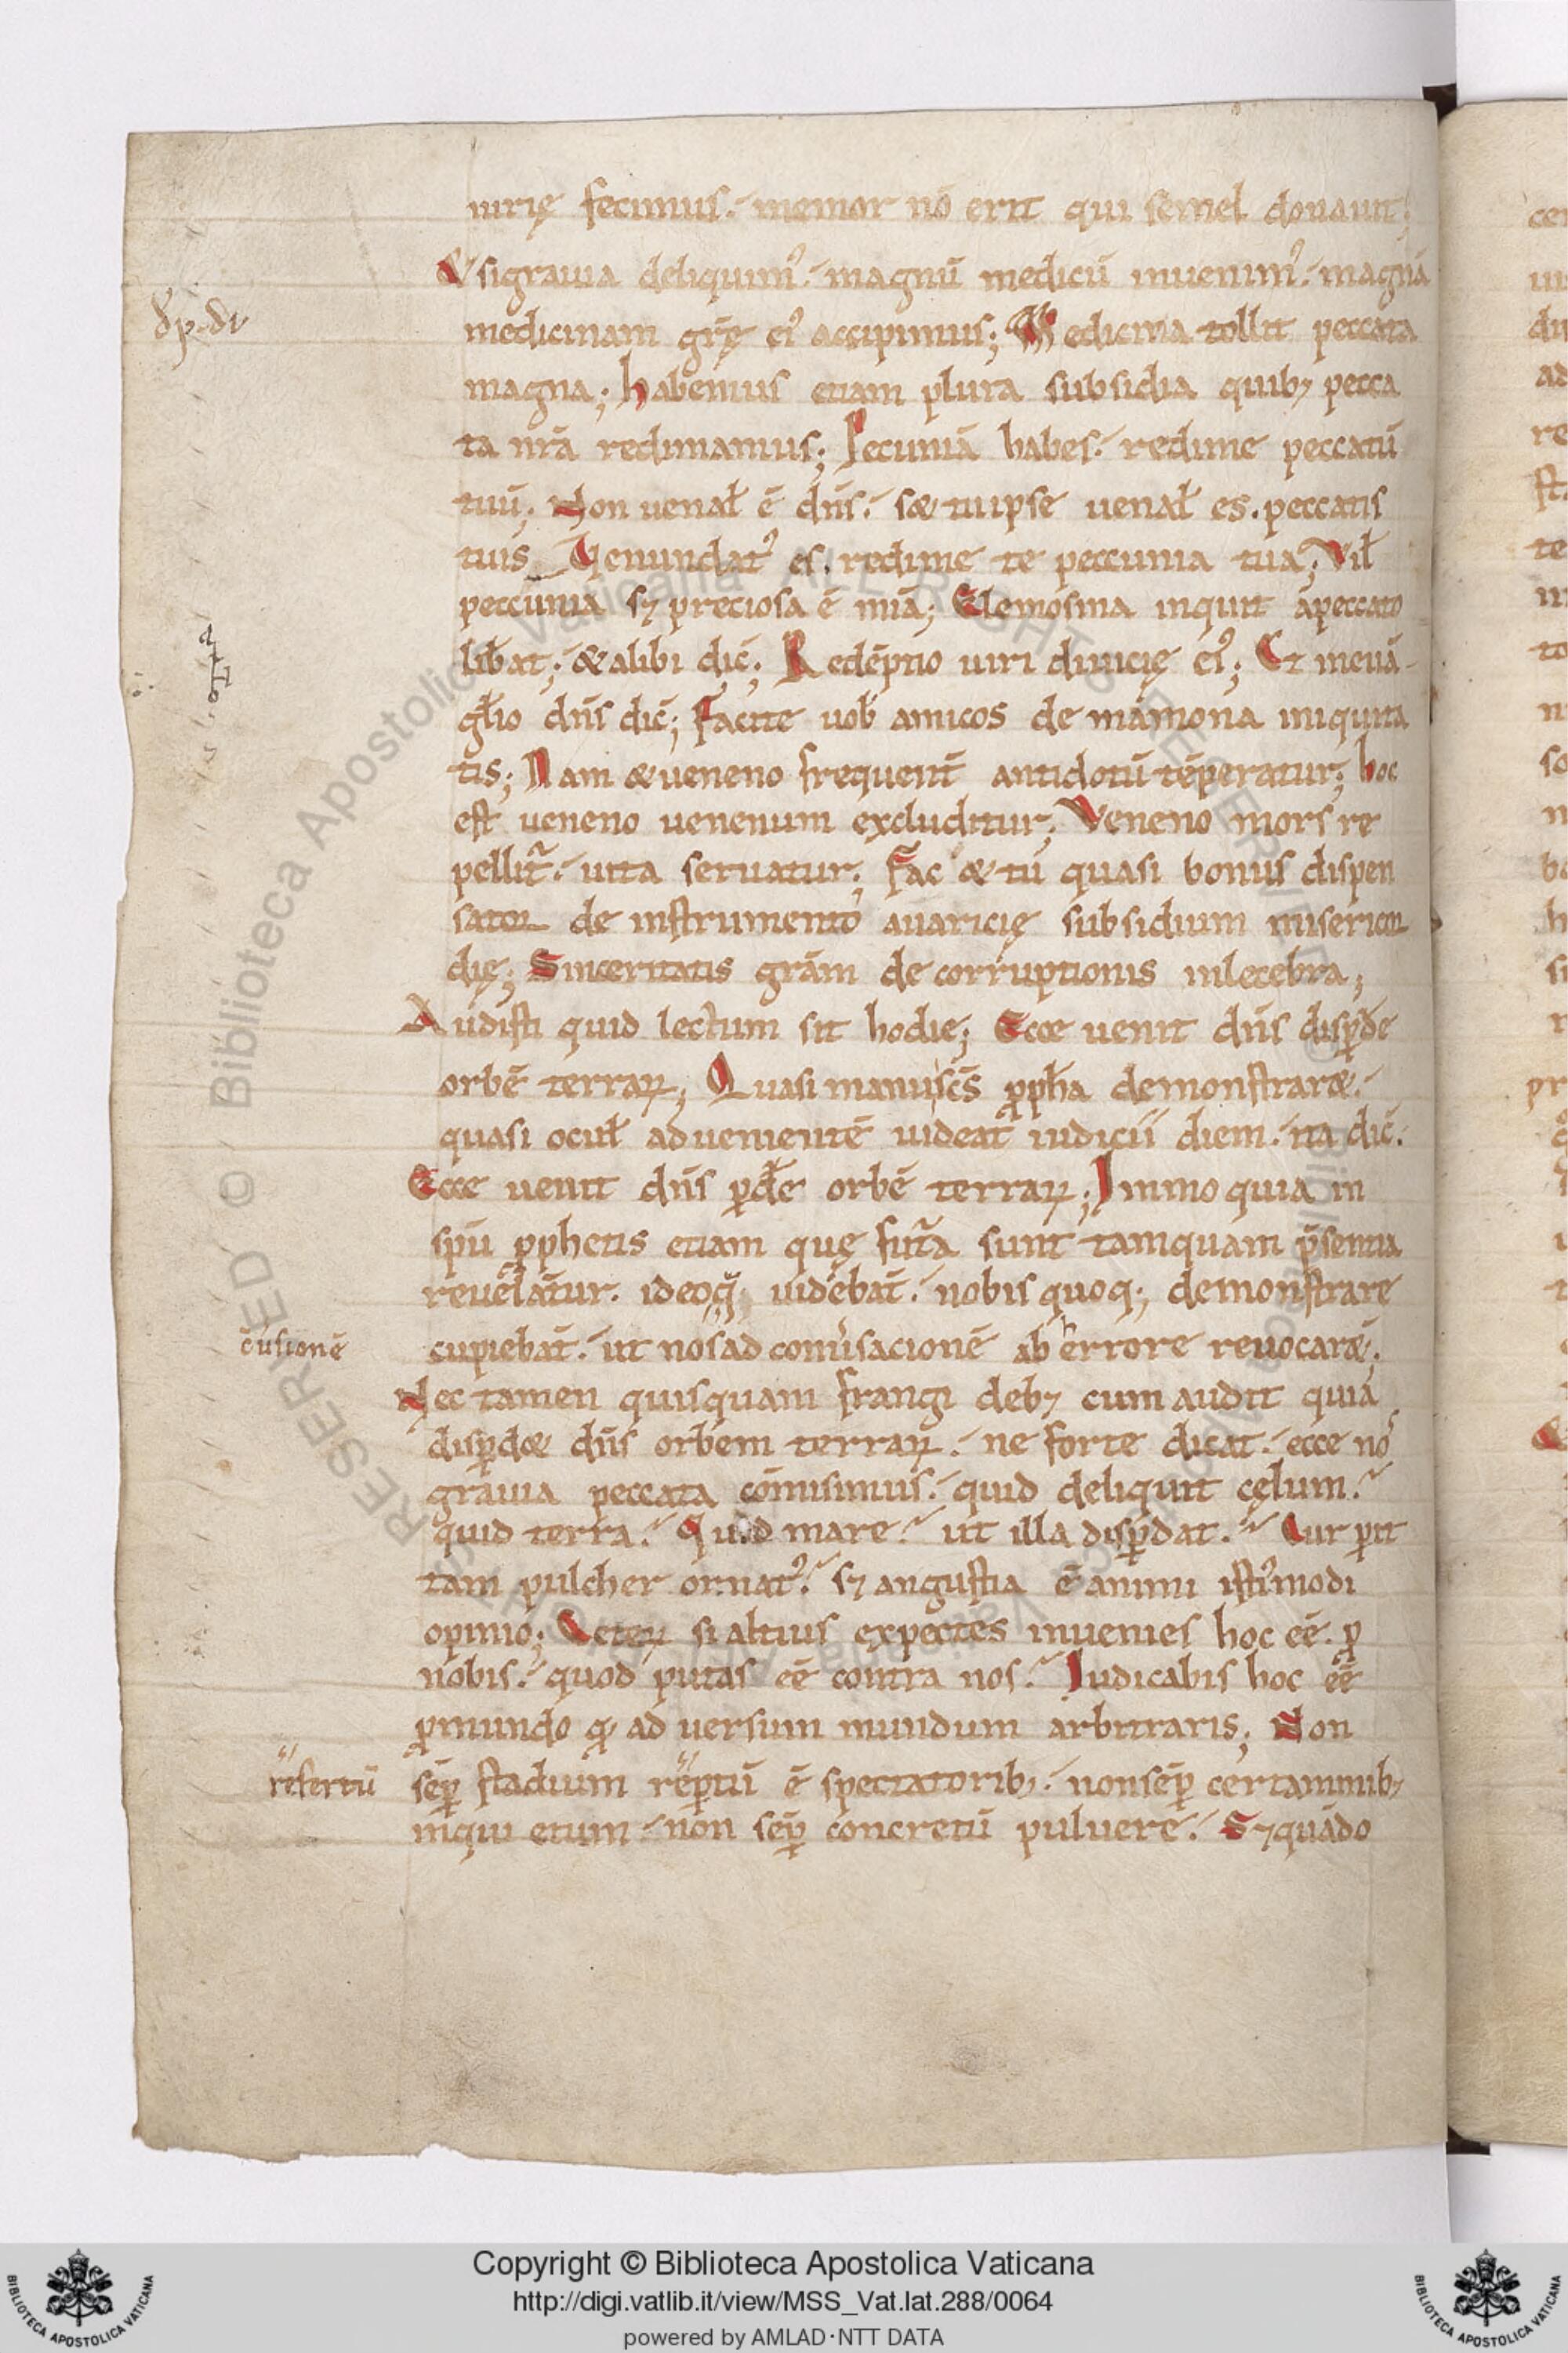 iurię fecimus. memor nō erit qui semel donauit;
& si grauia deliquim᾽. magnū medicū inuenim᾽. magnā
medicinam grę̄ ei᾽ accipimus; Medicina tollit peccata
magna; habemus etiam plura subsidia quib; pecca
ta nr̄a redimamus; Pecuniā habes. redime peccatū
tuū; Non uenał ē dn̄s. s& tu ipse uenał es. peccatis
tuis Uenundat᾽ es. redime te peccunia tua; Vił
peccunia sꝫ preciosa ē mīa; Elemosina inquit a peccato
libat; & alibi dic̄; Redēptio uiri diuicię ei᾽; Et in euā
glio dn̄s dic̄; Facite uob amicos de mamona iniquita
tis; Nam & ueneno frequent̄ antidotū tēperatur; hoc
est ueneno uenenum excluditur; Veneno mors re
pellit̄. uita seruatur; Fac & tu quasi bonus dispen
sator de instrumento auaricię subsidium misericor
dię; Sinceritatis grām de corruptionis inlecebra;
Audisti quid lectum sit hodie; Ecce uenit dn̄s disꝑde
orbē terraꝝ; Quasi manu sc̄s ꝓpha demonstrar&.
quasi ocuł aduenientē uideat iudicii diem. ita dic̄.
Ecce uenit dn̄s ꝑde orbē terraꝝ; Immo quia in
spū ꝓphetis etiam quę fut̄a sunt tamquam p̄sentia
reuelātur. ideoq; uidebat̄. nobis quoq; demonstrare
c̄usionē
cupiebat̄. ut nos ad conuersacionē ab errore reuocar&;
Nec tamen quisquam frangi debꝫ cum audit quia
disꝑd& dn̄s orbem terraꝝ. ne forte dicat. ecce no᾽
grauia peccata cōmisimus. quid deliquit cęlum.
quid terra. Quid mare. ut illa disꝑdat. Cur ꝑit
tam pulcher ornat᾽. sꝫ angustia ē animi isti᾽modi
opinio; Ceteꝝ si altius expectes inuenies hoc eē ꝓ
nobis. quod putas eē contra nos. Iudicabis hoc eē
ꝓ mundo qđ ad uersum mundum arbitraris; Non
refertū
sēꝑ stadium reꝑtū ē spectatorib;. non sēꝑ certaminib;
inqui etum. non sēꝑ concretū puluere. Sꝫ quādo
Copyright © Biblioteca Apostolica Vaticana
http://digi.vatlib.it/view/MSS_Vat.lat.288/0064
powered by AMLAD·NTT DATA
BIBLIOTECA APOSTOLICA VATICANA
BIBLIOTECA APOSTOLICA VATICANA